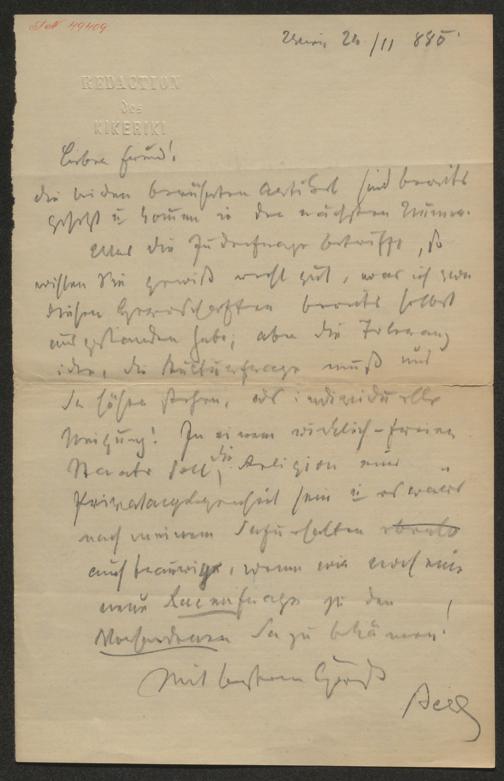 Wien 24/11 885
REDACTION
des
KIKERIKI
Lieber Freund!
die beiden bewußten Artikel sind bereits
gesetzt u kommen in der nächsten Numer.
Was die Judenfrage betrifft, so
wissen Sie gewiß recht gut, was ich von
diesen bereits selbst
ausgestanden habe; aber die Toleranz
idee, die Kulturfrage muß uns
da höher stehen, als individuelle
Neigung! In einem wirklich-freien
Staate soll die Religion nur
Privatangelegenheit sein u es wäre
nach meinem Dafürhalten
auch traurig, wenn wir noch eine
neue Racenfrage zu den
Vorhandenen dazu bekämen!
Mit bestem Gruß